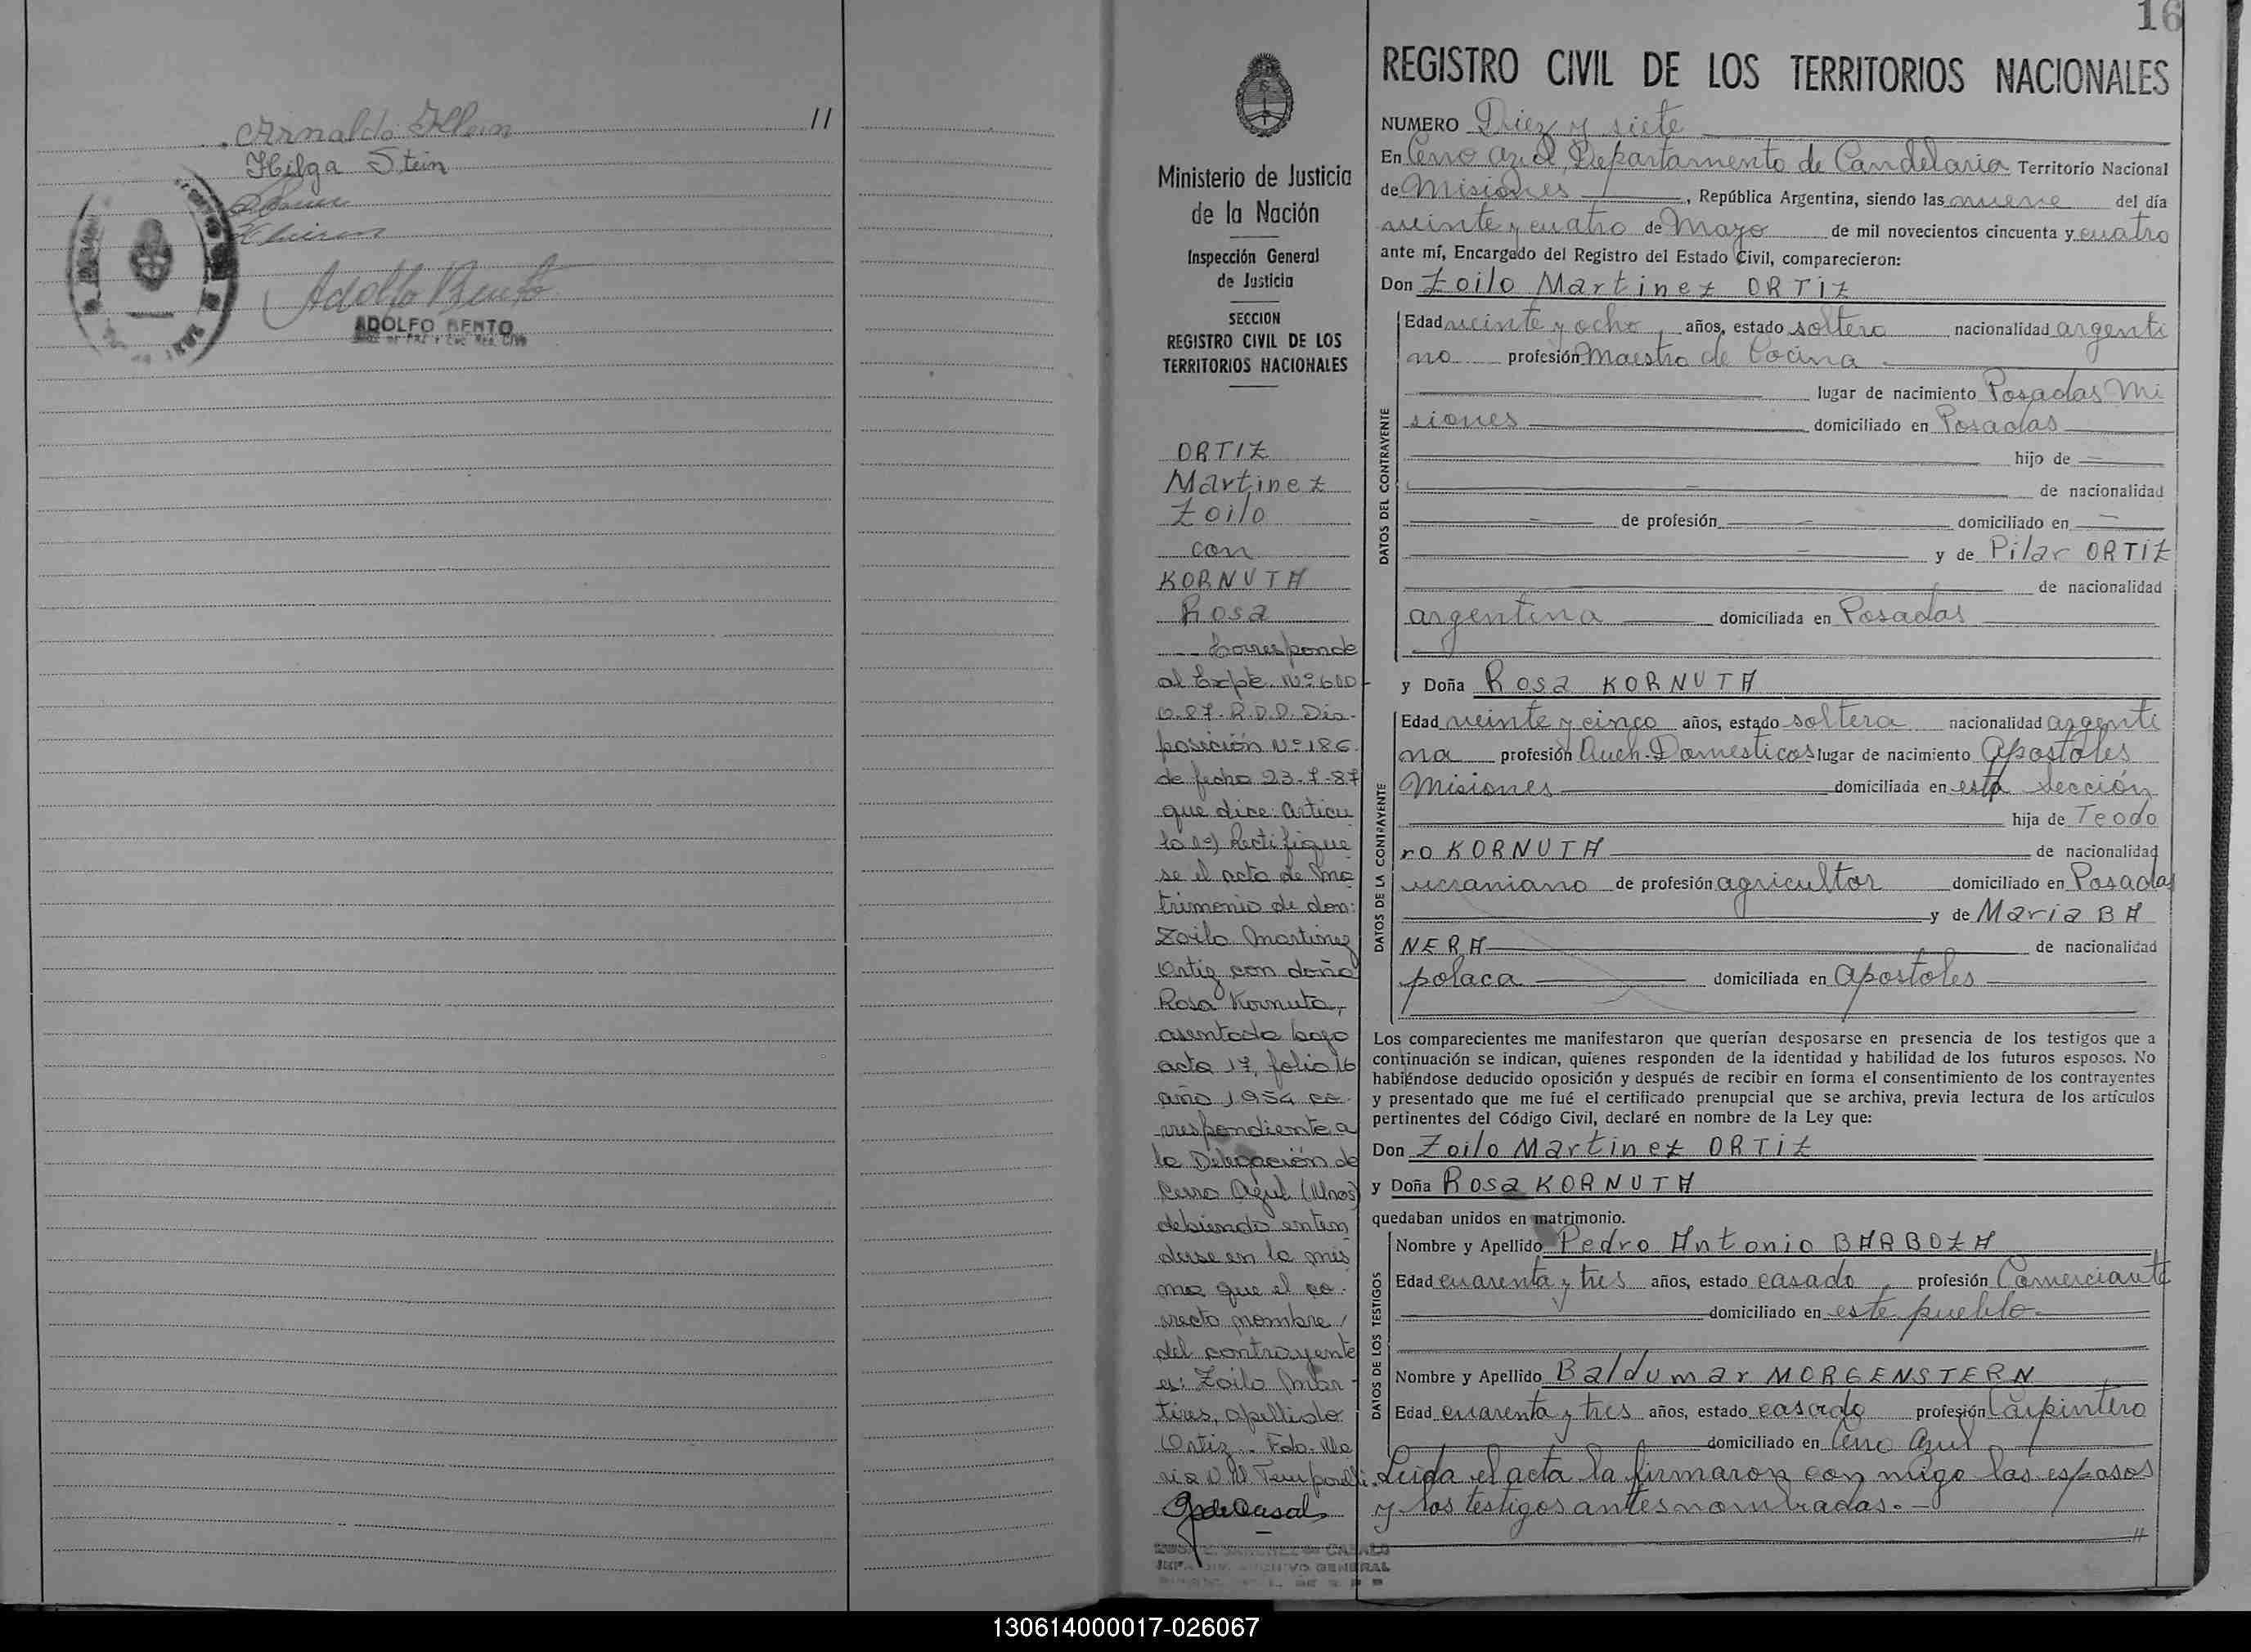 Arnaldo Klein
11
Hilga Stein
Adolfo Bento
ADOLFO BENTO
16
REGISTRO CIVIL DE LOS TERRITORIOS NACIONALES
Ministerio de Justicia
de la Nación
Inspección General
de Justicia
SECCION
REGISTRO CIVIL DE LOS
TERRITORIOS NACIONALES
ORTIZ
Martinez
Zoilo
con
KORNUTA
Rosa
Corresponde
al Expte. Nº 600
O-87-R.D.D. Dis-
posición Nº 186
de fecha 23-7-87
que dice: Artícu
lo 1º) Rectifique
se el acta de ma
trimonio de don:
Zoilo Martinez
Ortiz con doña
Rosa Kornuta,
asentada bajo
acta 17, folio 16
año 1954 co-
rrespondiente a
la Delegación de
Cerro Azul (Mnes)
debiendo enten
derse en la mis
ma que el co-
rrecto nombre
del contrayente
es: Zoilo Mar-
tires, apellido
Ortiz. Fdo. Ma
NUMERO Diez y siete
En Cerro Azul, Departamento de Candelaria Territorio Nacional
de Misiones, República Argentina, siendo las nueve del día
veinte y cuatro de Mayo de mil novecientos cincuenta y cuatro
ante mí, Encargado del Registro del Estado Civil, comparecieron:
Don Zoilo Martinez ORTIZ
DATOS DEL CONTRAYENTE
Edad veinte y ocho, años, estado soltero nacionalidad argenti
no profesión Maestro de Cocina
lugar de nacimiento Posadas Mi
siones domiciliado en Posadas
hijo de
de nacionalidad
de profesión domiciliado en
y de Pilar ORTIZ
de nacionalidad
argentina domiciliada en Posadas
y Doña Rosa KORNUTA
DATOS DE LA CONTRAYENTE
Edad veinte y cinco años, estado soltera nacionalidad argenti
na profesión Queh. Domesticos lugar de nacimiento Apostoles
Misiones domiciliada en esta sección
hija de Teodo
ro KORNUTA de nacionalidad
ucraniano de profesión agricultor domiciliado en Posadas
y de Maria BA
NERA de nacionalidad
polaca domiciliada en Apostoles
Los comparecientes me manifestaron que querían desposarse en presencia de los testigos que a
continuación se indican, quienes responden de la identidad y habilidad de los futuros esposos. No
habiéndose deducido oposición y después de recibir en forma el consentimiento de los contrayentes
y presentado que me fué el certificado prenupcial que se archiva, previa lectura de los artículos
pertinentes del Código Civil, declaré en nombre de la Ley que:
Don Zoilo Martinez ORTIZ
y Doña Rosa KORNUTA
quedaban unidos en matrimonio.
DATOS DE LOS TESTIGOS
Nombre y Apellido Pedro Antonio BARBOZA
Edad cuarenta y tres años, estado casado, profesión Comerciante
domiciliado en este pueblo
Nombre y Apellido Baldumar MORGENSTERN
Edad cuarenta y tres años, estado casado profesión Carpintero
domiciliado en Cerro Azul
Leida el acta la firmaron con migo los esposos
y los testigos antes nombrados.
//
130614000017-026067